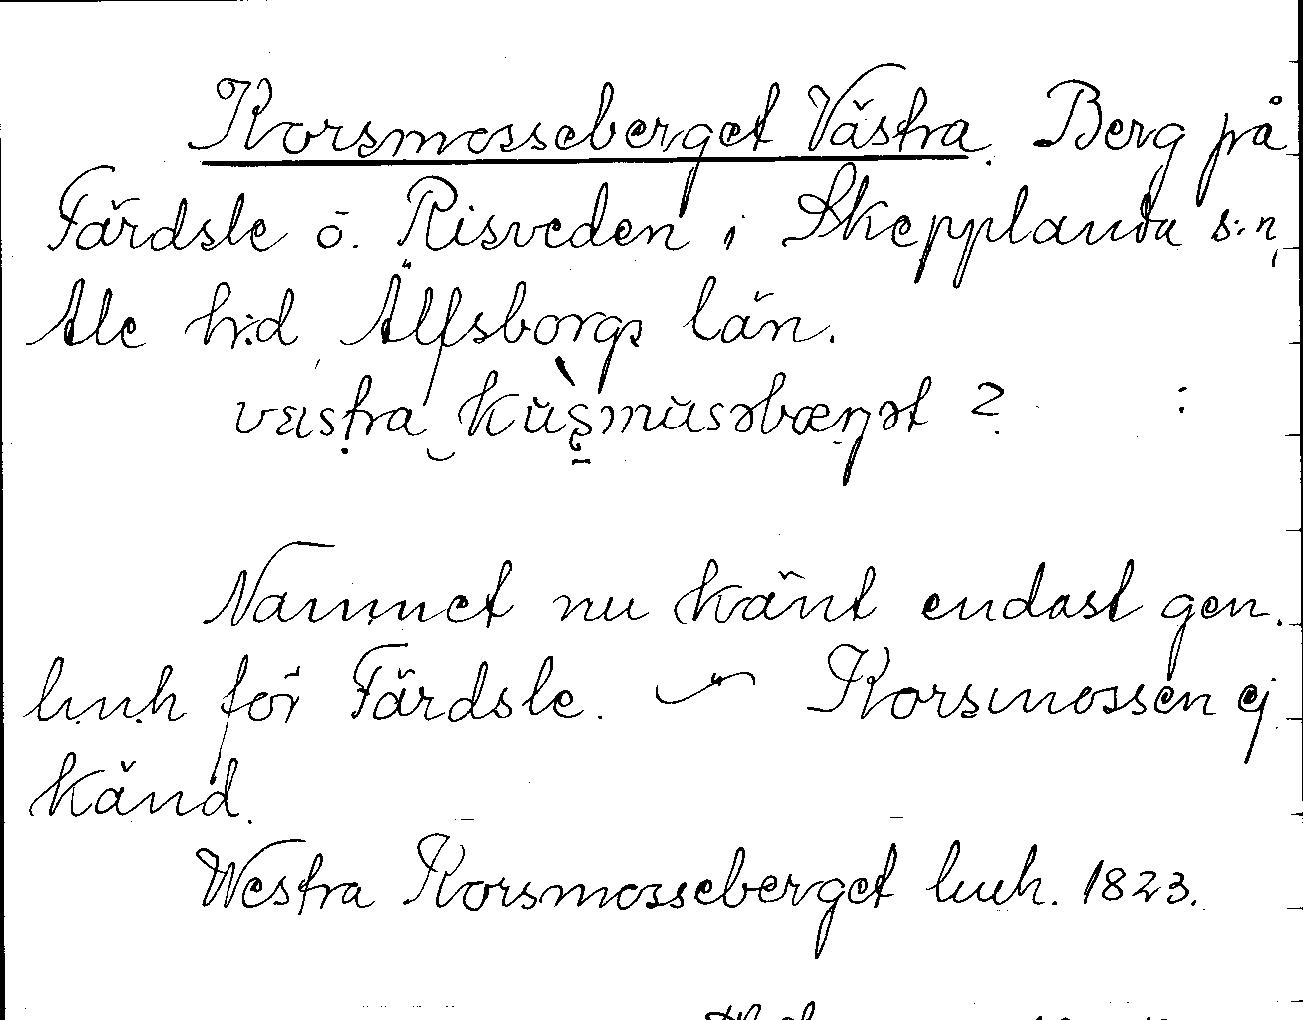 Korsmosseberget Västra. Berg på
Färdsle ö. Risveden i Skepplanda s:n,
Ale h:d, Älfsborgs län.
Namnet nu känt endast gen.
lmh för Färdsle. Korsmossen ej
känd.
Westra Korsmosseberget lmh. 1823.